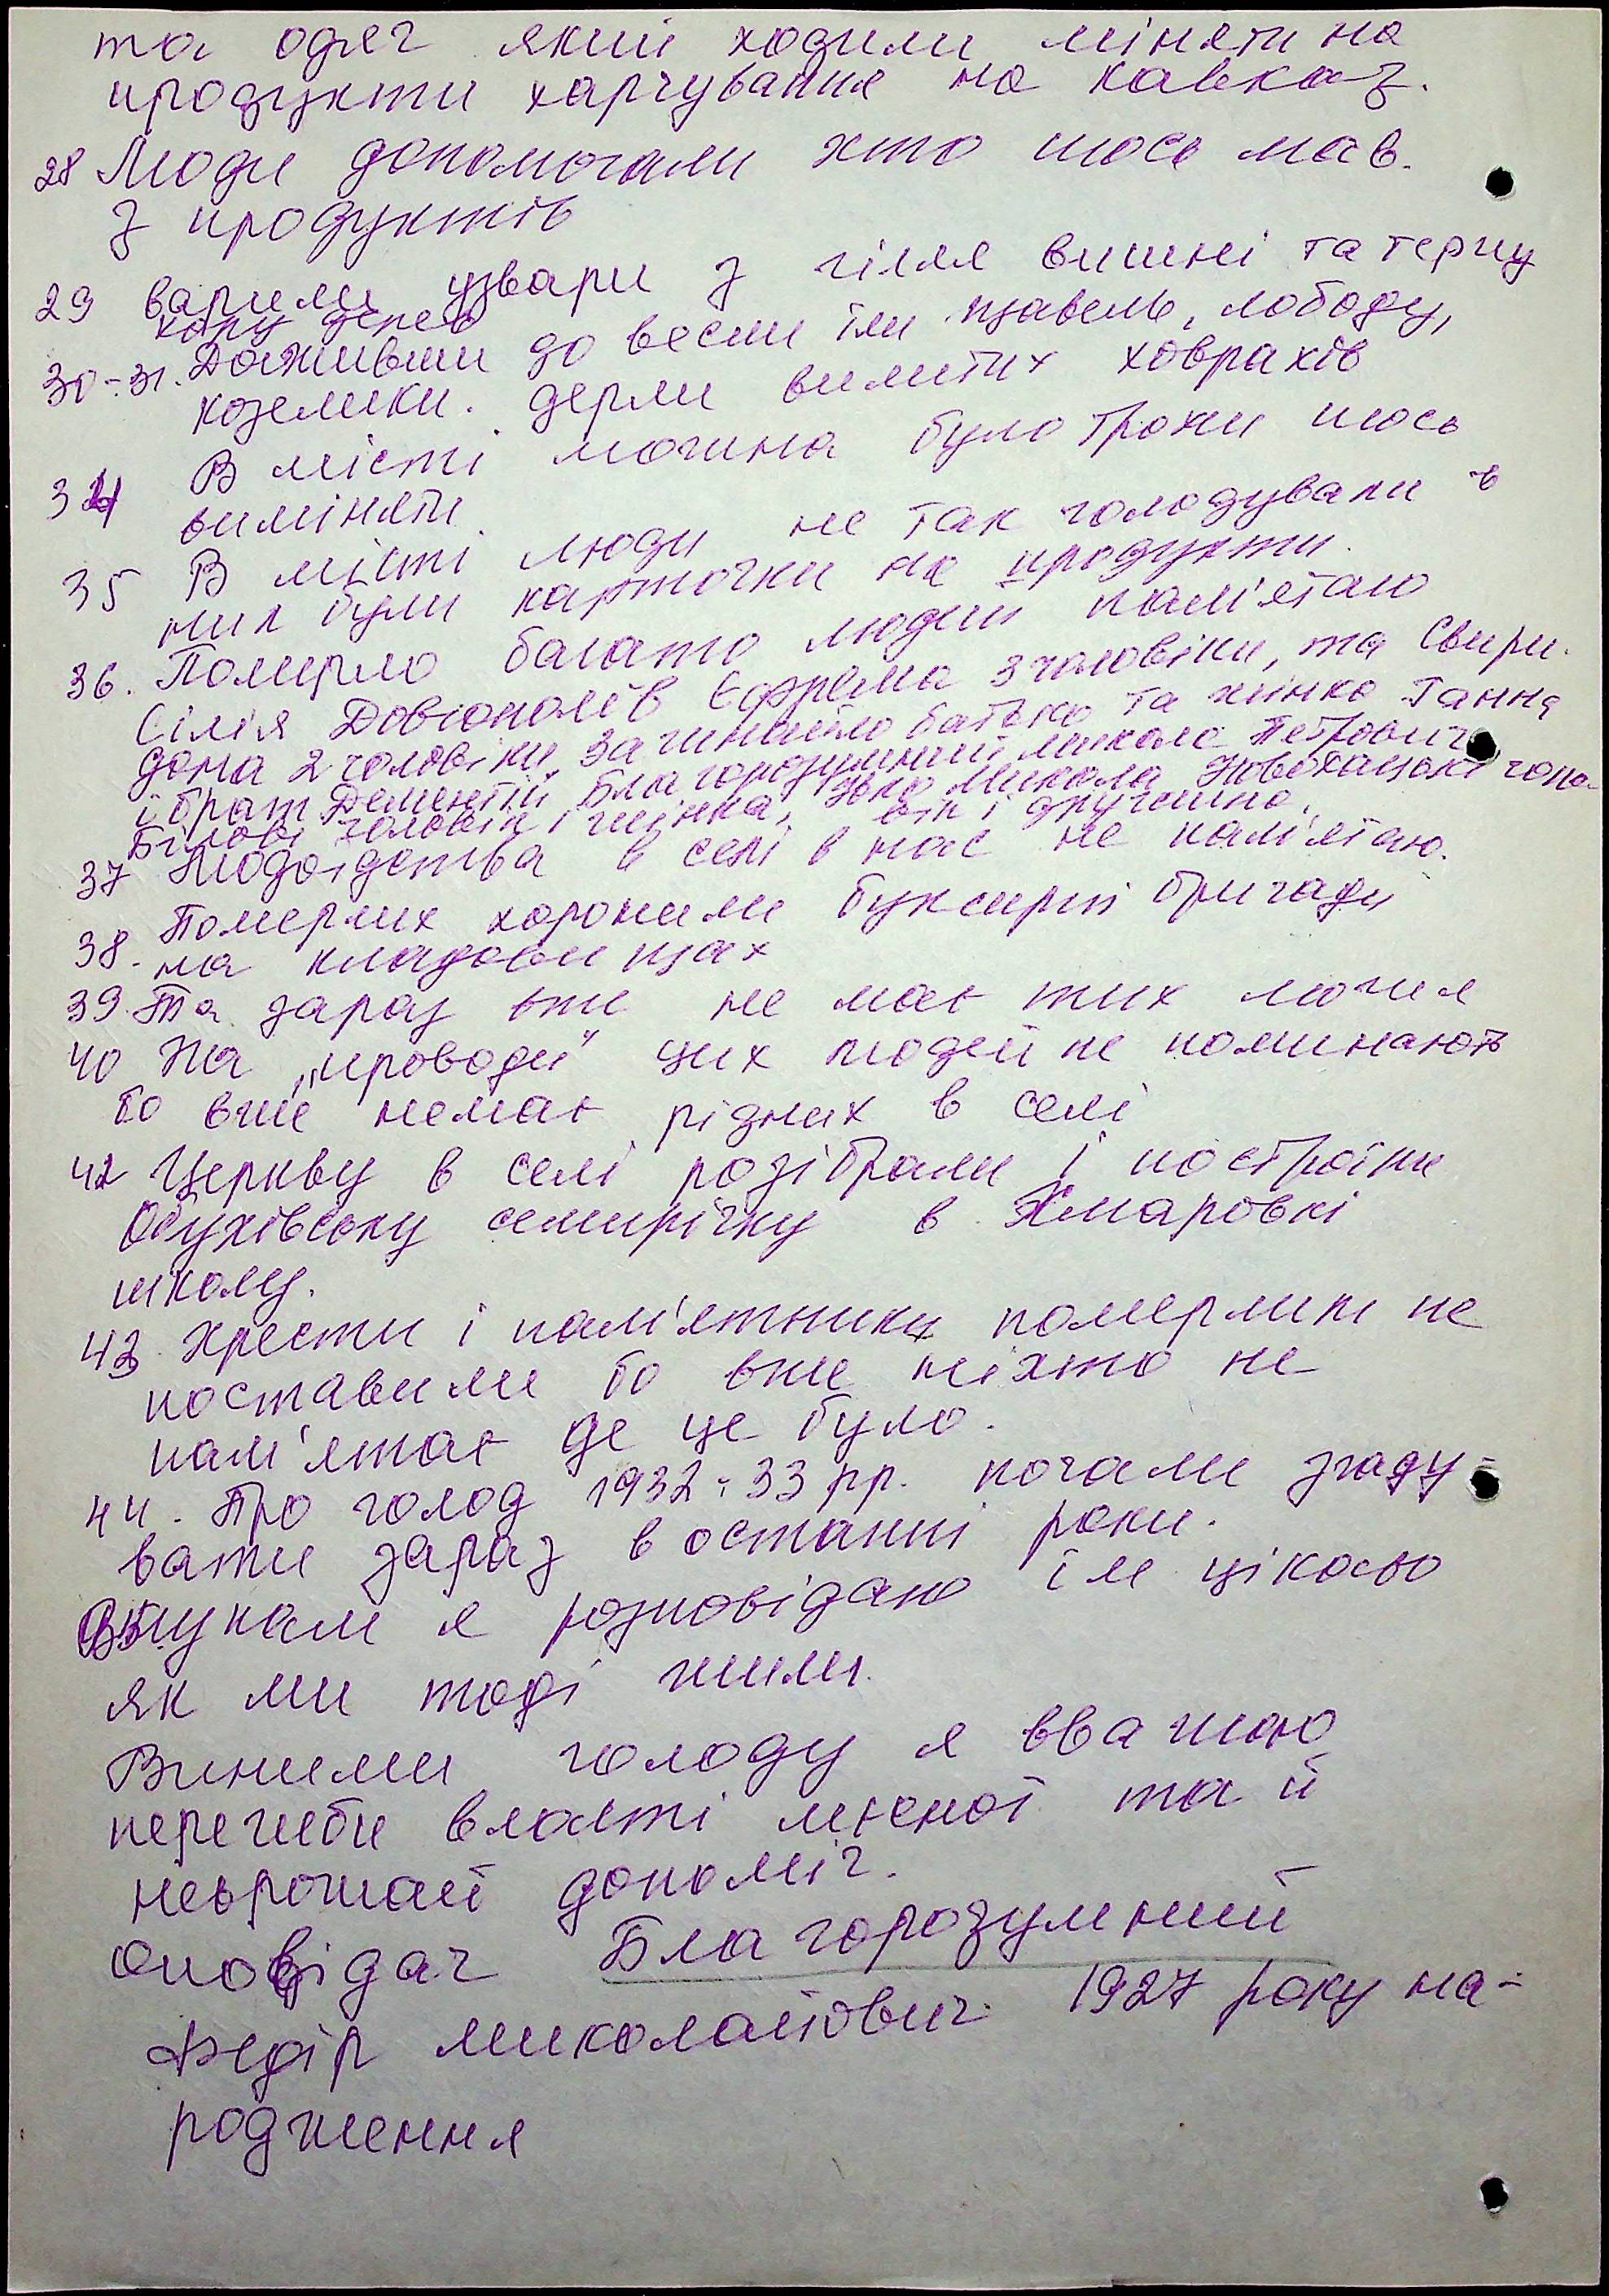 та одяг який ходили міняти на
продукти харчування на кавказ.
28 Люди допомогали хто шось мав.
з продуктів
29 варили узвари з гілля вишні та терну
кору дерев
30-31. Доживши до весни їли щавель, лободу,
козелики. дерли вилитих ховрахів
34 В місті можна було трохи шось
виміняти
35 В місті люди не так голодували в
них були карточки на продукти.
36. Померло багато людей пам'ятаю
Сілія Довгополів Єфрема 3 чоловіки, та Свири-
дона 2 чоловіки Загинайло батько та жінка Ганна
і брат Дементій Благорозумний микола Петрович
Білові чоловік і жінка, Микола Новохацькі чоло-
вік і дружина.
37 Людоїдства в селі в нас не пам'ятаю.
38. Померлих хоронили буксирні бригади
на кладовищах
39. Та зараз вже не має тих могил
40 На „проводи" цих людей не поминають
бо вже немає рідних в селі
42 Церкву в селі розібрали і построїли
Обухівську семирічку в Хмаровкі
школу.
43. Хрести і пам'ятники померлим не
поставили бо вже ніхто не
пам'ятає де це було.
44. Про голод 1932-33 рр. почали згаду-
вати зараз в останні роки.
Внукам я розповідаю їм цікаво
як ми тоді жили.
Виними голоду я вважаю
перегиби власті місної та й
неврожай допоміг.
Оповідач Благорозумний
Федір миколайович 1927 року на-
родження